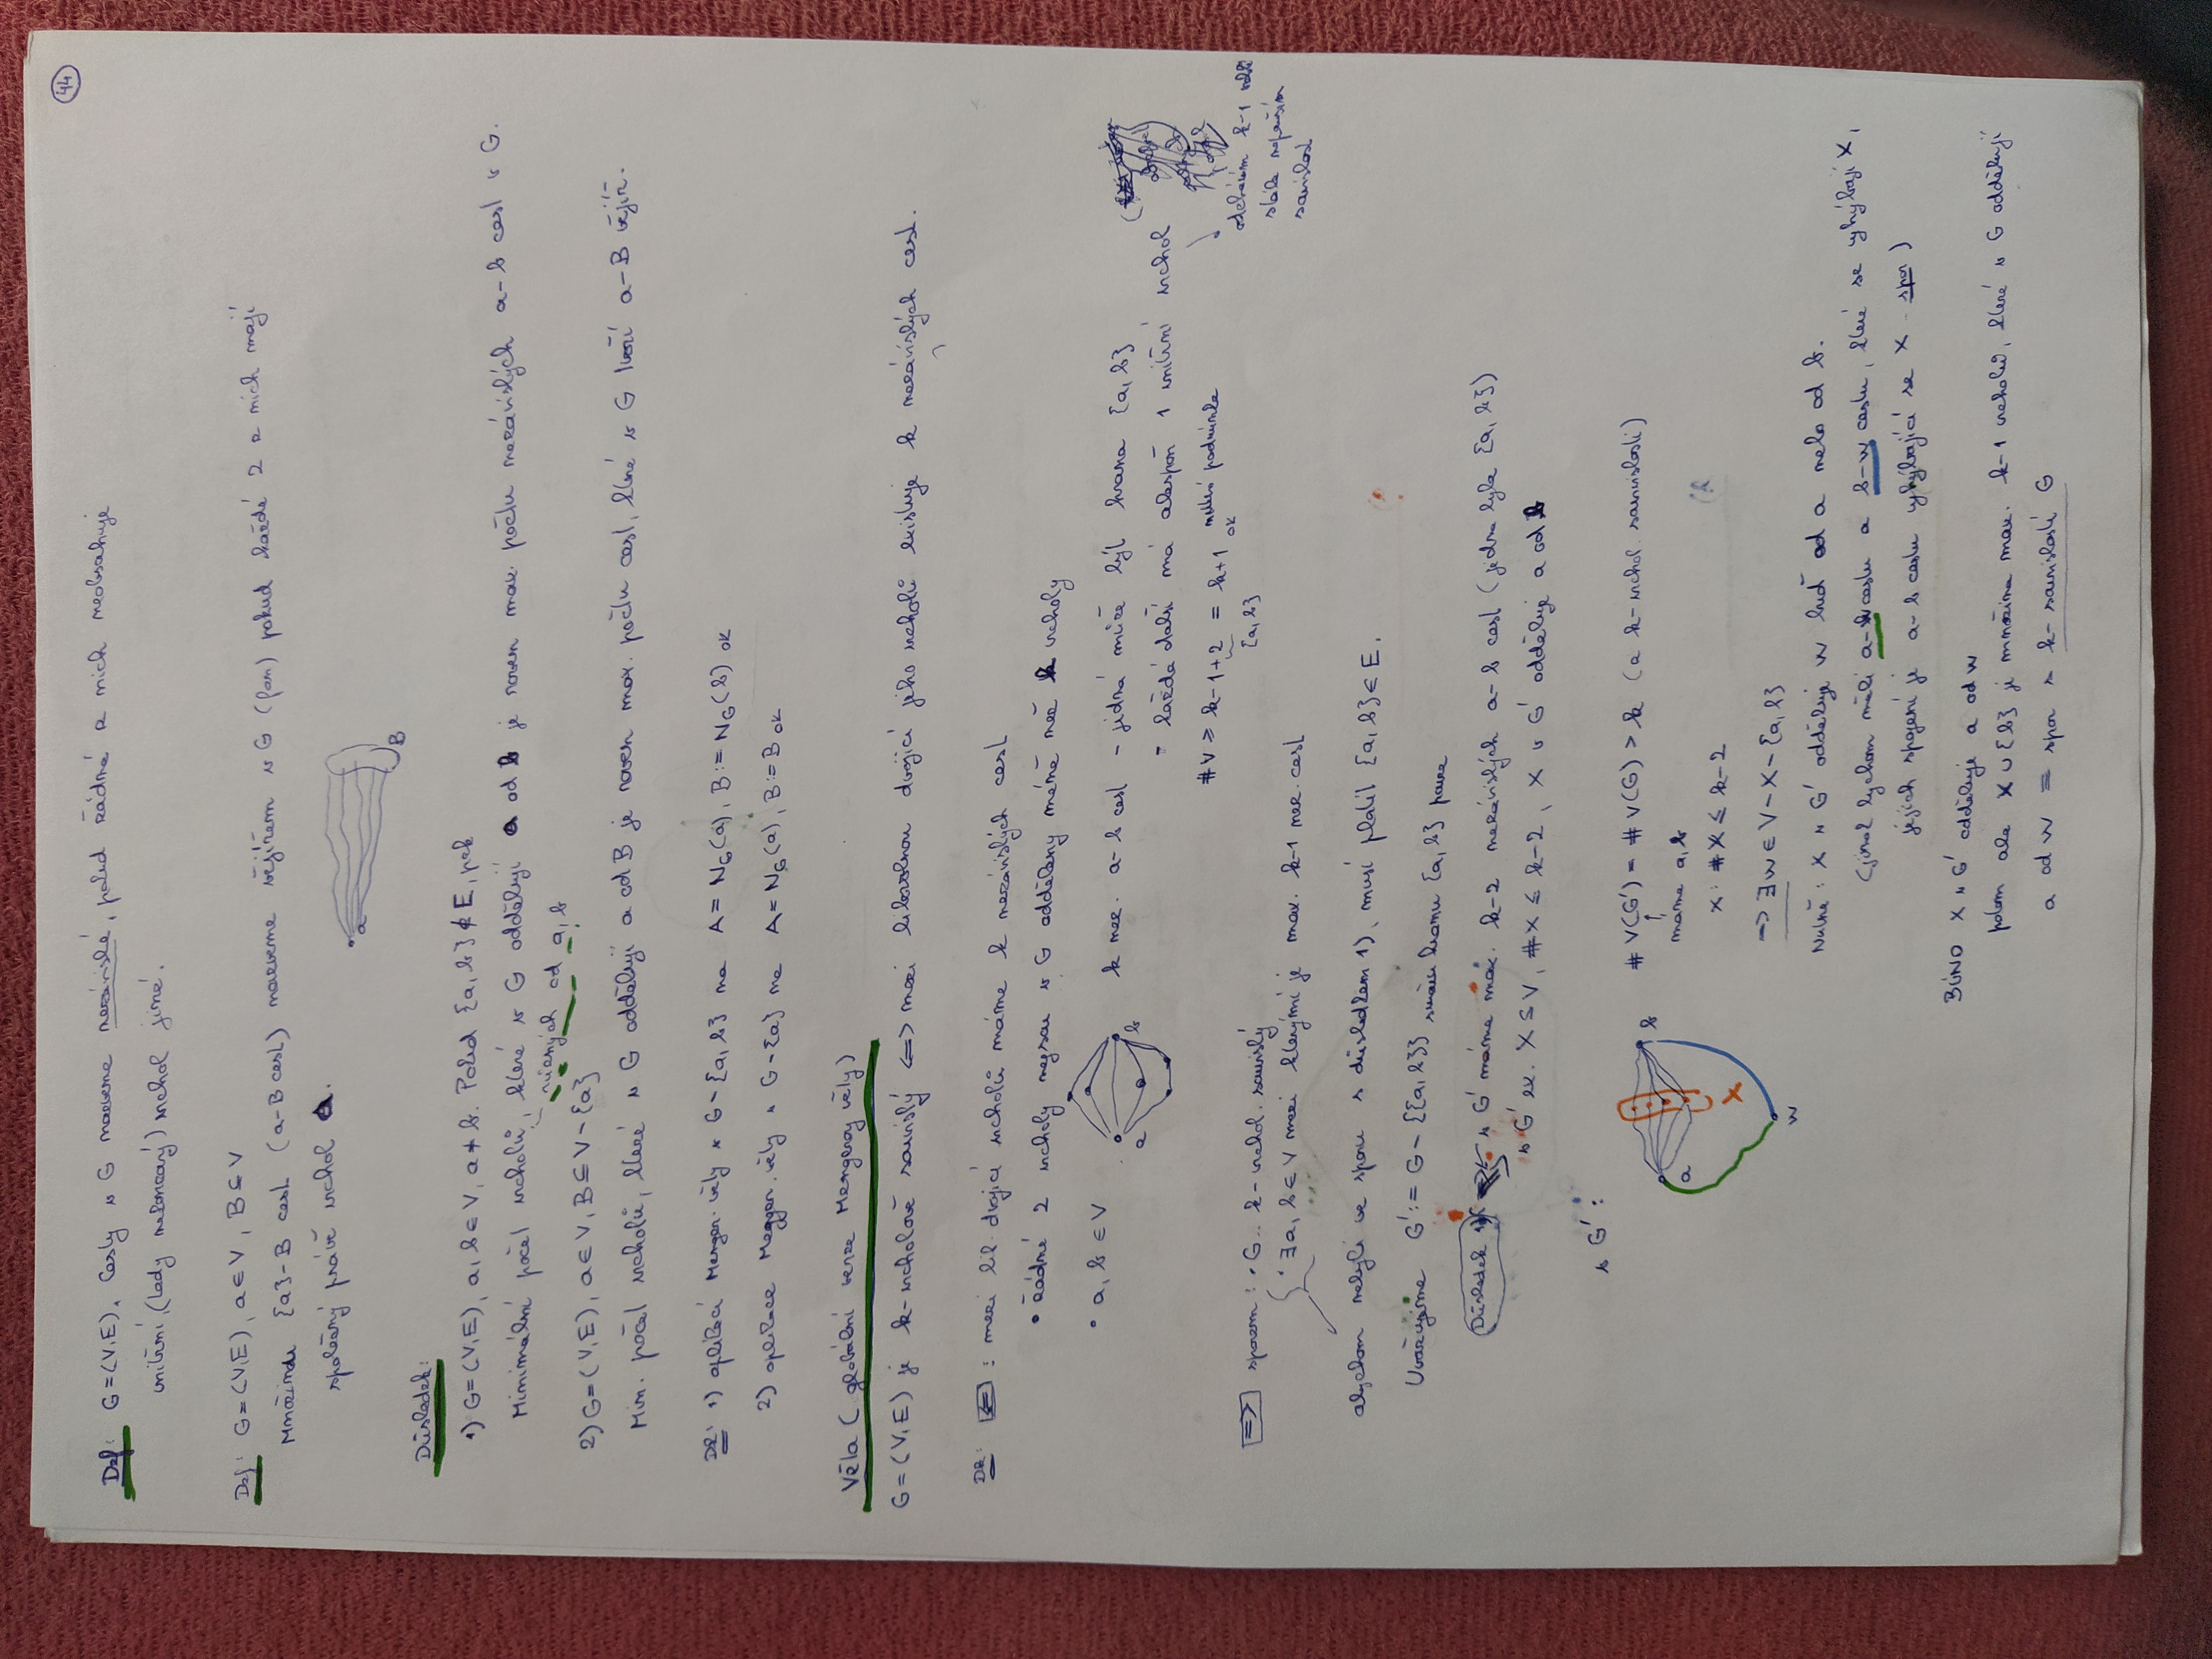 44
Def: G=(V,E), Cesty v G nazveme nezávislé, pokud žádná z nich neobsahuje
vnitřní (tedy nekoncový) vrchol jiné.
Def: G=(V,E), a∈V, B⊆V
Množinu {a}-B cest (a-B cest) nazveme vějířem v G (fan) pokud každé 2 z nich mají
společný právě vrchol a.
a
B
Důsledek:
1) G=(V,E), a,b∈V, a≠b. Pokud {a,b}∉E, pak
Minimální počet vrcholů, které v G oddělují a od b je roven max. počtu nezávislých a-b cest v G.
různých od a,b
2) G=(V,E), a∈V, B⊆V-{a}
Min. počet vrcholů, které v G oddělují a od B je roven max. počtu cest, které v G tvoří a-B vějíř.
Dk: 1) aplikací Menger. věty v G-{a,b} na A=N_G(a), B:=N_G(b) ok
2) aplikace Menger. věty v G-{a} na A=N_G(a), B:=B ok
Věta (globální verze Mengerovy věty)
G=(V,E) je k-vrcholově souvislý <=> mezi libovolnou dvojicí jeho vrcholů existuje k nezávislých cest.
Dk: <= : mezi lib. dvojicí vrcholů máme k nezávislých cest
• žádné 2 vrcholy nejsou v G odděleny méně než k vrcholy
• a,b∈V
a
b
k nez. a-b cest - jedna může být hrana {a,b}
- každá další má alespoň 1 vnitřní vrchol
odebráním k-1 vrch
stále neporuším
souvislost
#V ≥ k-1+2 = k+1 ok
{a,b}
=> sporem: • G.. k-vrchol. souvislý
• ∃a,b∈V mezi kterými je max. k-1 nez. cest
abychom nebyli ve sporu s důsledkem 1), musí platit {a,b}∈E.
Uvažujme G':=G-{{a,b}} smažu hranu {a,b} pouze
Důsledek 1)
v G' máme max. k-2 nezávislých a-b cest (jedna byla {a,b})
v G' ex. X⊆V, #X≤k-2, X v G' odděluje a od b
v G':
a
b
X
w
#V(G')=#V(G)>k (z k-vrchol. souvislosti)
máme a,b
X: #X≤k-2
=> ∃w∈V-X-{a,b}
Nutně: X v G' odděluje w buď od a nebo od b.
(jinak bychom měli a-w cestu a b-w cestu, které se vyhýbají X,
jejich spojení je a-b cestu vyhýbající se X spor)
BÚNO X v G' odděluje a od w
potom ale X∪{b} je množina max. k-1 vrcholů, které v G oddělují
a od w ≡ spor s k-souvislostí G